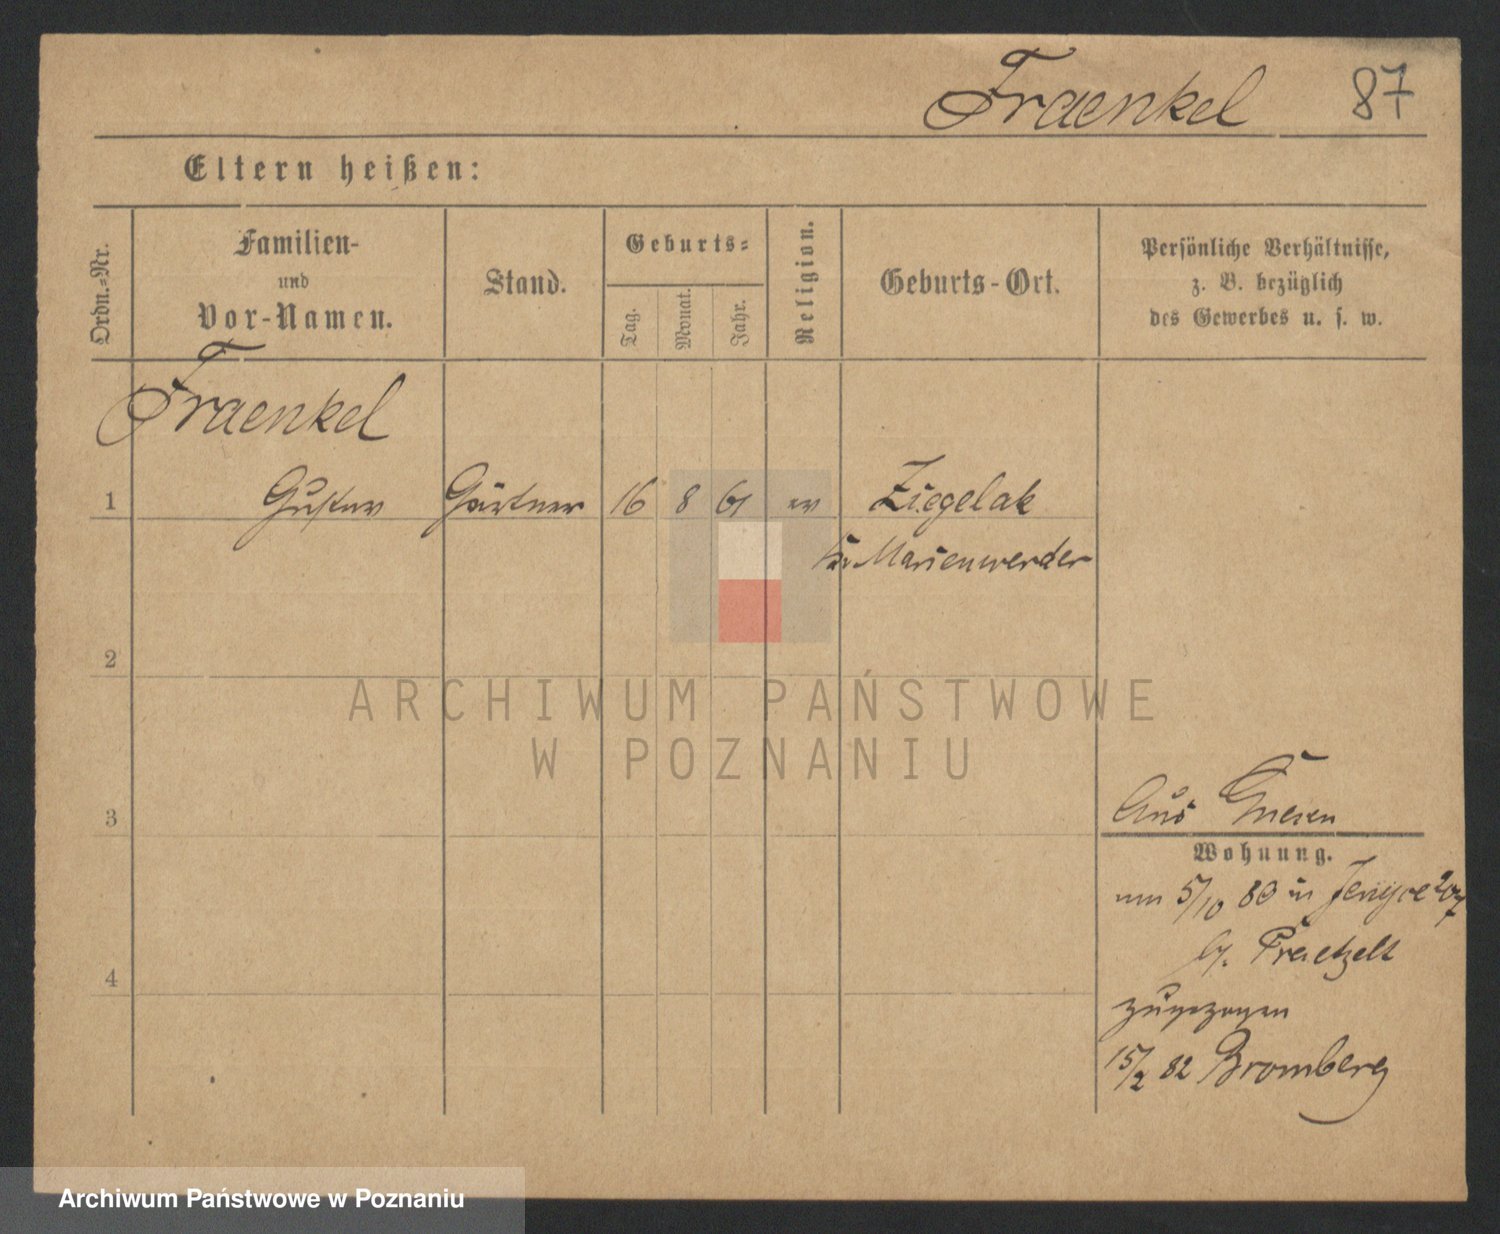 Fraenkel 87
Eltern heißen:
Ordn.-Nr.
Familien-
und
Vor-Namen.
Stand.
Geburts-
Tag.
Monat.
Jahr.
Religion.
Geburts-Ort.
Persönliche Verhältnisse,
z. B. bezüglich
des Gewerbes u. s. w.
Fraenkel
1 Gustav Gärtner 16 8 61 ev Ziegelak
Kr. Marienwerder
2
ARCHIWUM PAŃSTWOWE
W POZNANIU
3
Aus Gnesen
Wohnung.
5/10 80 in 207
zugezogen
4
15/2 82 Bromberg
Archiwum Państwowe w Poznaniu